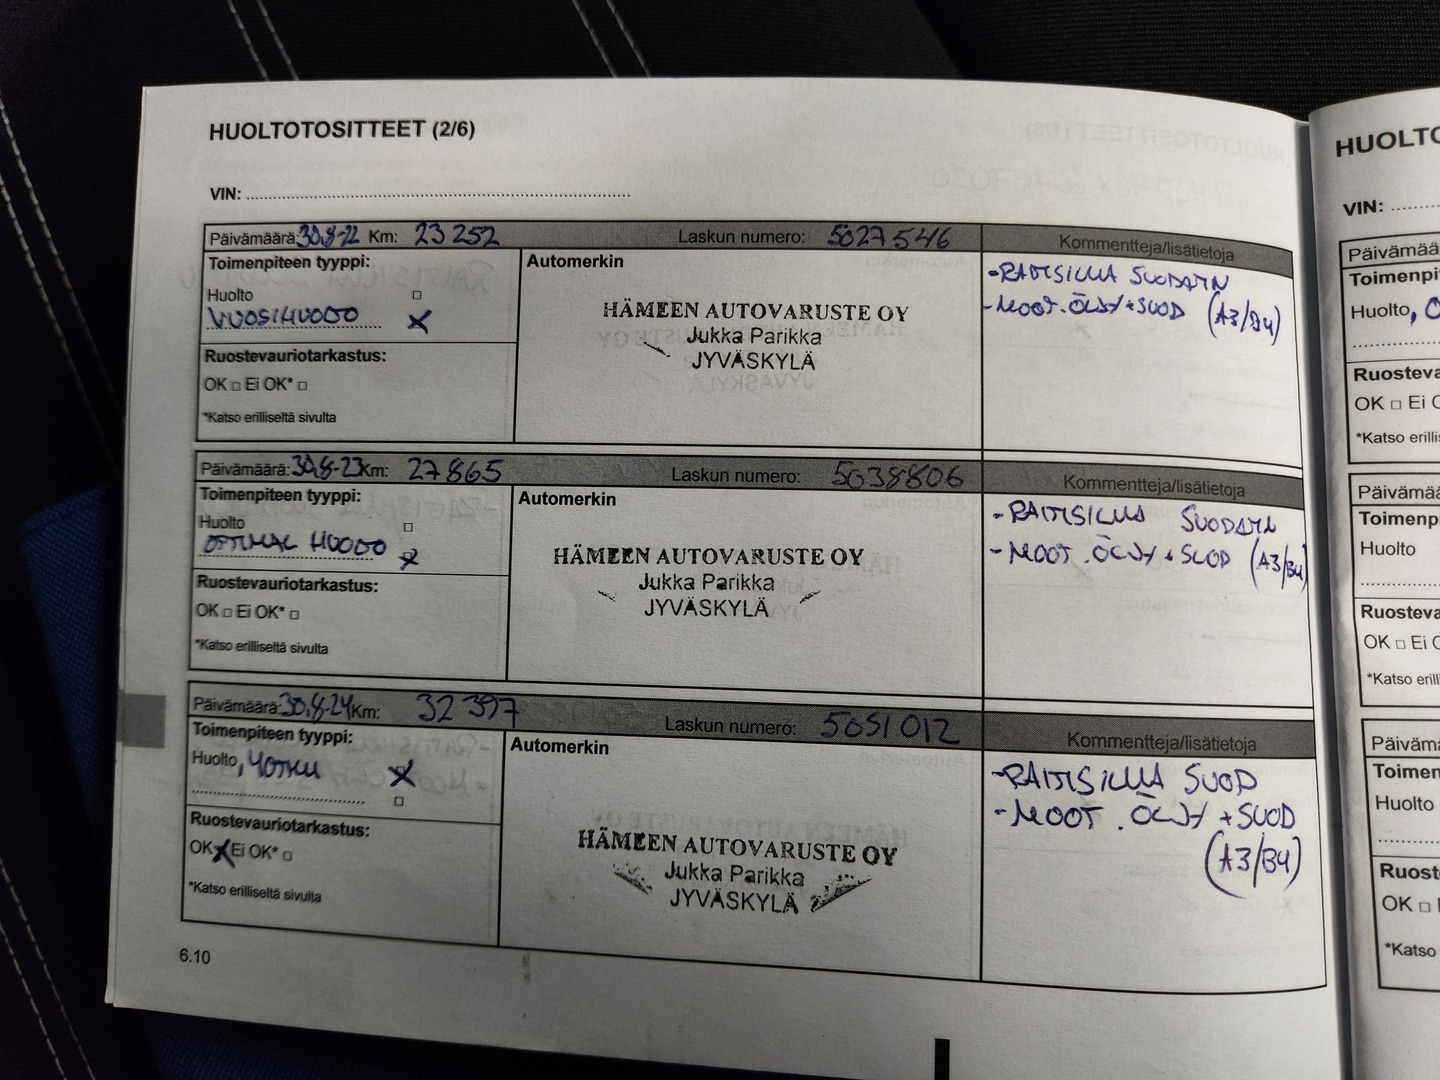 HUOLTOTOSITTEET (2/6)
VIN:
Päivämäärä: 30.8-22 Km: 23 252 Laskun numero: 5027546 Kommentteja/lisätietoja
Toimenpiteen tyyppi:
Huolto
VUOSIHUOLTO
Ruostevauriotarkastus:
OK □ Ei OK* □
*Katso erilliseltä sivulta
Automerkin
HÄMEEN AUTOVARUSTE OY
Jukka Parikka
JYVÄSKYLÄ
- RAITISILMA SUODATIN
- MOOT. ÖLJY + SUOD (A3/B4)
Päivämäärä: 30.8-23 Km: 27865 Laskun numero: 5038806 Kommentteja/lisätietoja
Toimenpiteen tyyppi:
Huolto
OPTIMAL HUOLTO
Ruostevauriotarkastus:
OK □ Ei OK* □
*Katso erilliseltä sivulta
Automerkin
HÄMEEN AUTOVARUSTE OY
Jukka Parikka
JYVÄSKYLÄ
- RAITISILMA SUODATIN
- MOOT. ÖLJY + SUOD (A3/B4)
Päivämäärä: 30.8-24 Km: 32 397 Laskun numero: 5051012 Kommentteja/lisätietoja
Toimenpiteen tyyppi:
Huolto, 40TKM
Ruostevauriotarkastus:
OK X Ei OK* □
*Katso erilliseltä sivulta
Automerkin
HÄMEEN AUTOVARUSTE OY
Jukka Parikka
JYVÄSKYLÄ
- RAITISILMA SUOD
- MOOT. ÖLJY + SUOD
(A3/B4)
6.10
HUOLTO
VIN:
Päivämää
Toimenpi
Huolto,
Ruosteva
OK □ Ei
*Katso erilli
Päivämää
Toimenp
Huolto
Ruosteva
OK □ Ei
*Katso eril
Päivämä
Toimen
Huolto
Ruost
OK □
*Katso